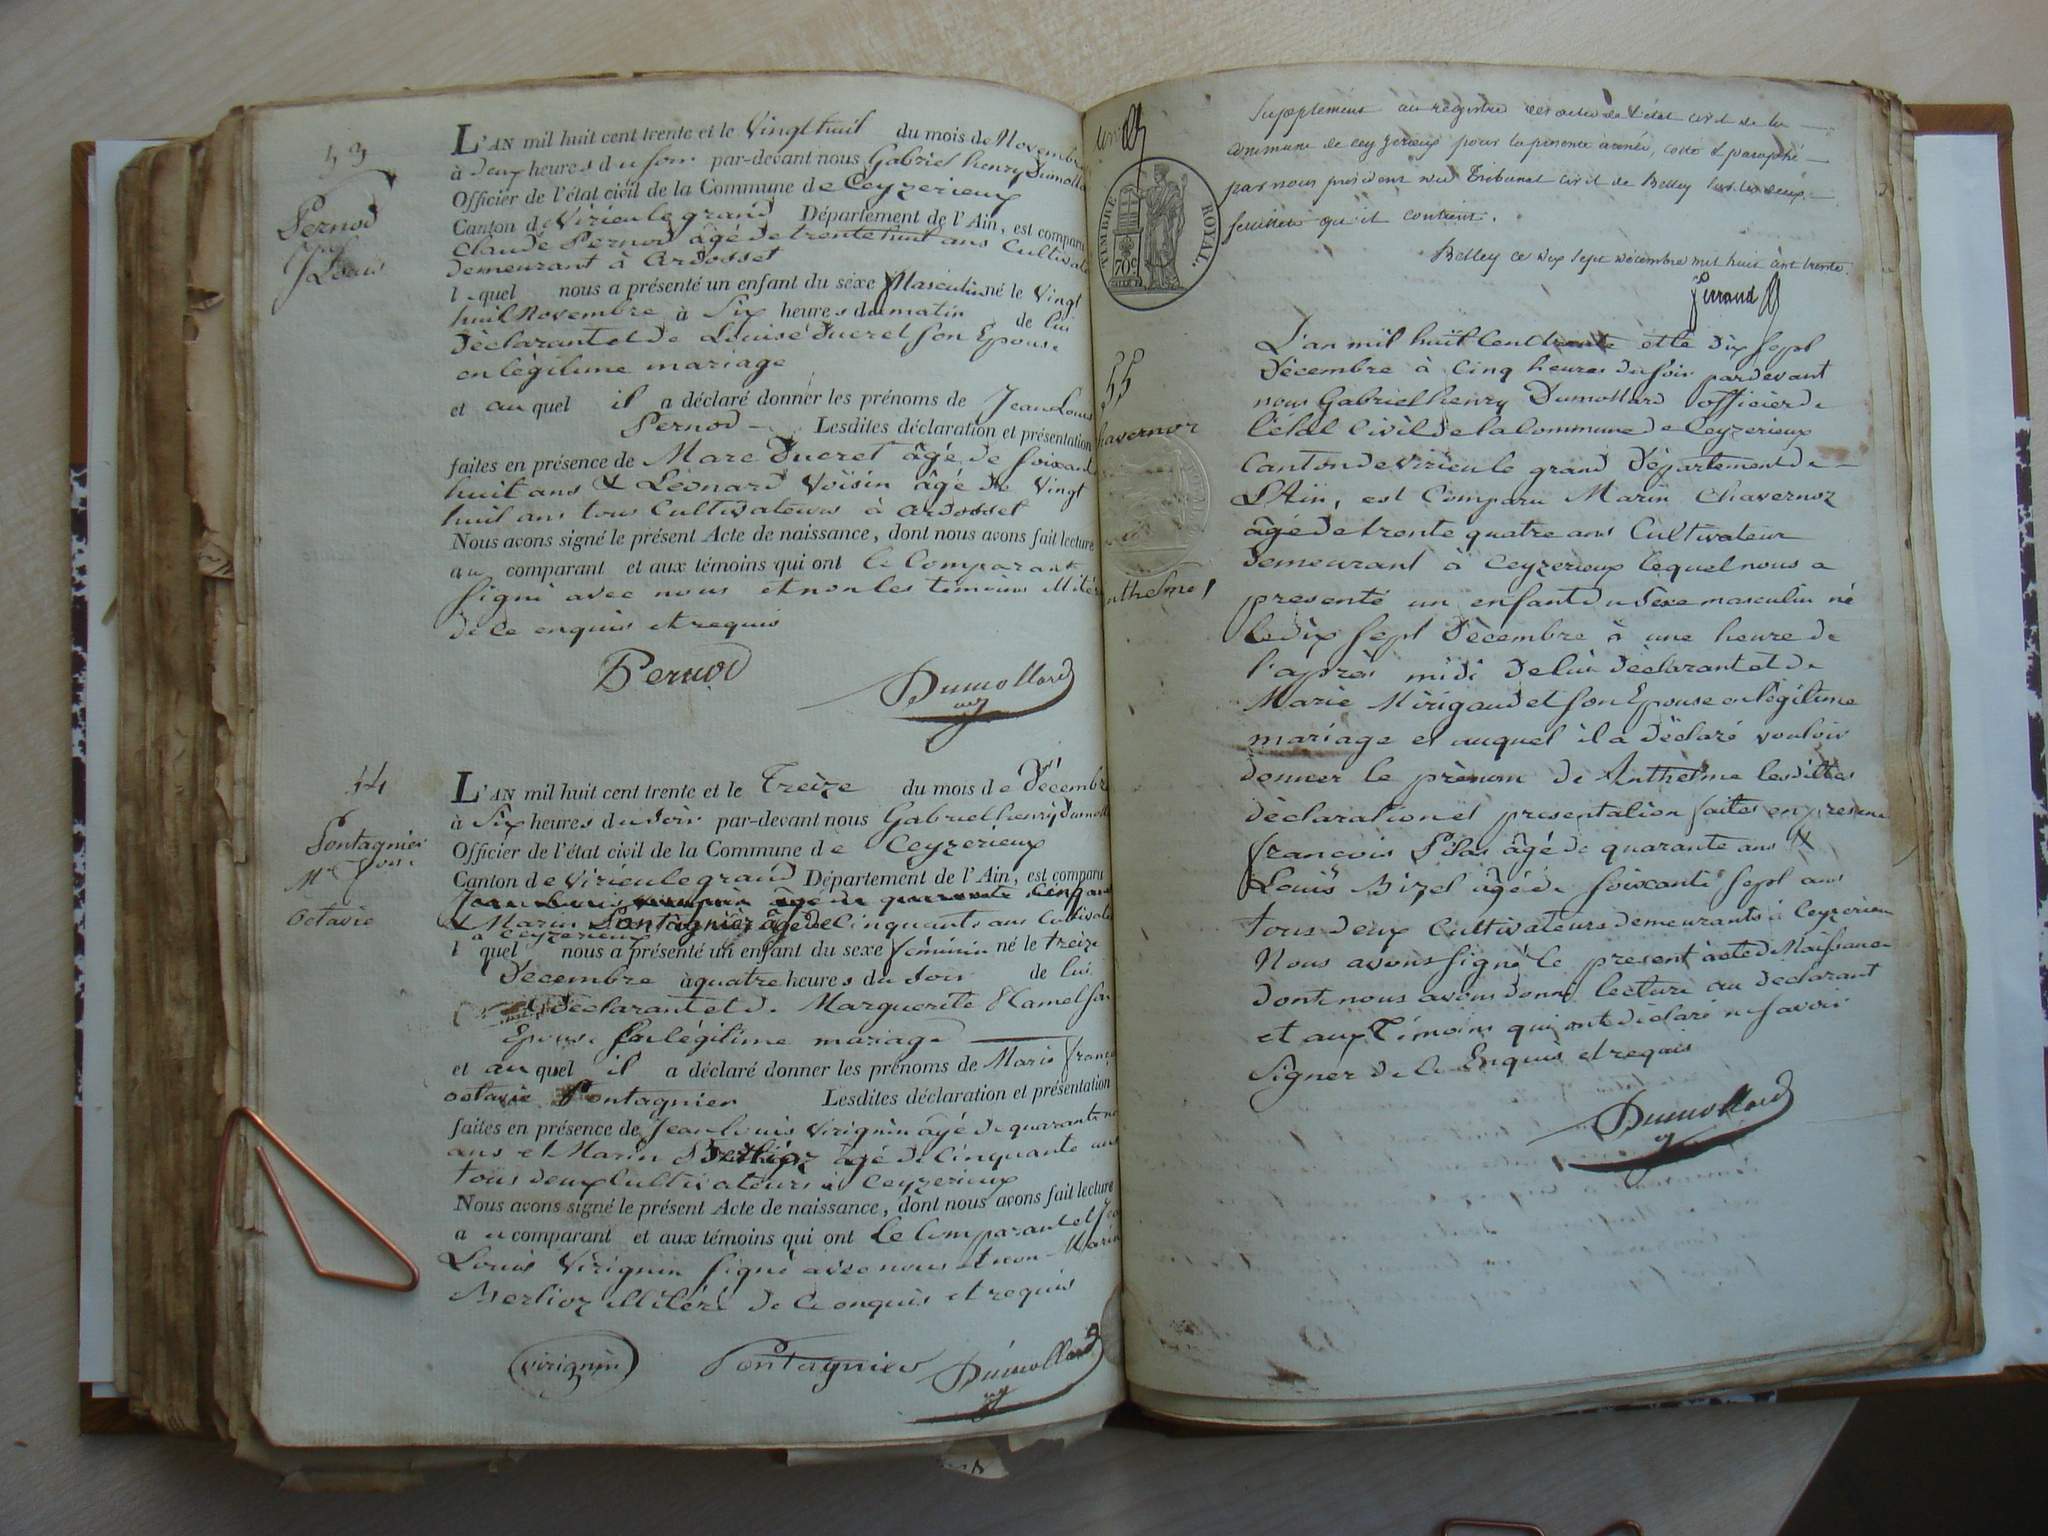 53
Pernod
Jean
Louis
L'AN mil huit cent trente et le Vingt huit du mois de Novembre
à Deux heures du soir par-devant nous Gabriel henry Dumollard
Officier de l'état civil de la Commune de Ceyzerieux
Canton de Virieu le grand Département de l'Ain, est comparu
Claude Pernod âgé de trente huit ans Cultivateur
demeurant à Ardosset
lequel nous a présenté un enfant du sexe Masculin né le Vingt
huit Novembre à Six heures du matin de lui
Déclarant et de Louise Ducret son Epouse
en légitime mariage
et auquel il a déclaré donner les prénoms de Jean Louis
Pernod Lesdites déclaration et présentation
faites en présence de Marc Ducret âgé de soixante
huit ans & Léonard Voisin âgé de Vingt
huit ans tous Cultivateurs à Ardosset
Nous avons signé le présent Acte de naissance, dont nous avons fait lecture
au comparant et aux témoins qui ont le Comparant
signé avec nous et non les témoins illitérés
de ce enquis et requis
Pernod Dumollard
54
Pontagnier
Mie
Octavie
L'AN mil huit cent trente et le Treize du mois de Décembre
à Six heures du soir par-devant nous Gabriel henry Dumollard
Officier de l'état civil de la Commune de Ceyzerieux
Canton de Virieu le grand Département de l'Ain, est comparu
& Marin Pontagnier âgé de Cinquante ans Cultivateur
à Ceyzerieux
lequel nous a présenté un enfant du sexe féminin né le treize
Décembre à quatre heures du soir de lui
Déclarant et de Marguerite Hamel son
Epouse En légitime mariage
et auquel il a déclaré donner les prénoms de Marie françoise
octavie Pontagnier Lesdites déclaration et présentation
faites en présence de Jean Louis Virignin âgé de quarante
ans et Marin Berlioz âgé de Cinquante ans
tous deux Cultivateurs à Ceyzerieux
Nous avons signé le présent Acte de naissance, dont nous avons fait lecture
au comparant et aux témoins qui ont le Comparant et Jean
Louis Virignin signé avec nous et non Marin
Berlioz illitéré de ce enquis et requis
virignin Pontagnier Dumollard
TIMBRE ROYAL
70c
Supplement au registre des actes de l'état civil de la
commune de Ceyzerieux pour la presente année, coté & paraphé
par nous president du Tribunal civil de Belley sur les deux
feuillets qu'il contient.
Belley ce dix sept décembre mil huit cent trente.
55
Chavernoz
Anthelme
L'an mil huit Cent trente et le dix sept
Décembre à Cinq heures du soir par devant
nous Gabriel henry Dumollard officier de
l'état Civil de la Commune de Ceyzerieux
Canton de Virieu le grand Département de
L'Ain, est Comparu Marin Chavernoz
âgé de trente quatre ans Cultivateur
demeurant à Ceyzerieux lequel nous a
presenté un enfant du Sexe masculin né
le dix sept Décembre à une heure de
l'après midi de lui déclarant et de
Marie Mirigaudet son Epouse en légitime
mariage et auquel il a déclaré vouloir
donner le prénom de Anthelme lesdittes
déclaration et presentation faites en presence
françois Pilas âgé de quarante ans &
Louis Bizel âgé de soixante sept ans
tous deux Cultivateurs demeurants à Ceyzerieu
Nous avons signé le present acte de Naissance
dont nous avons donné lecture au déclarant
et aux Témoins qui ont déclaré ne savoir
Signer de ce Enquis et requis
Dumollard